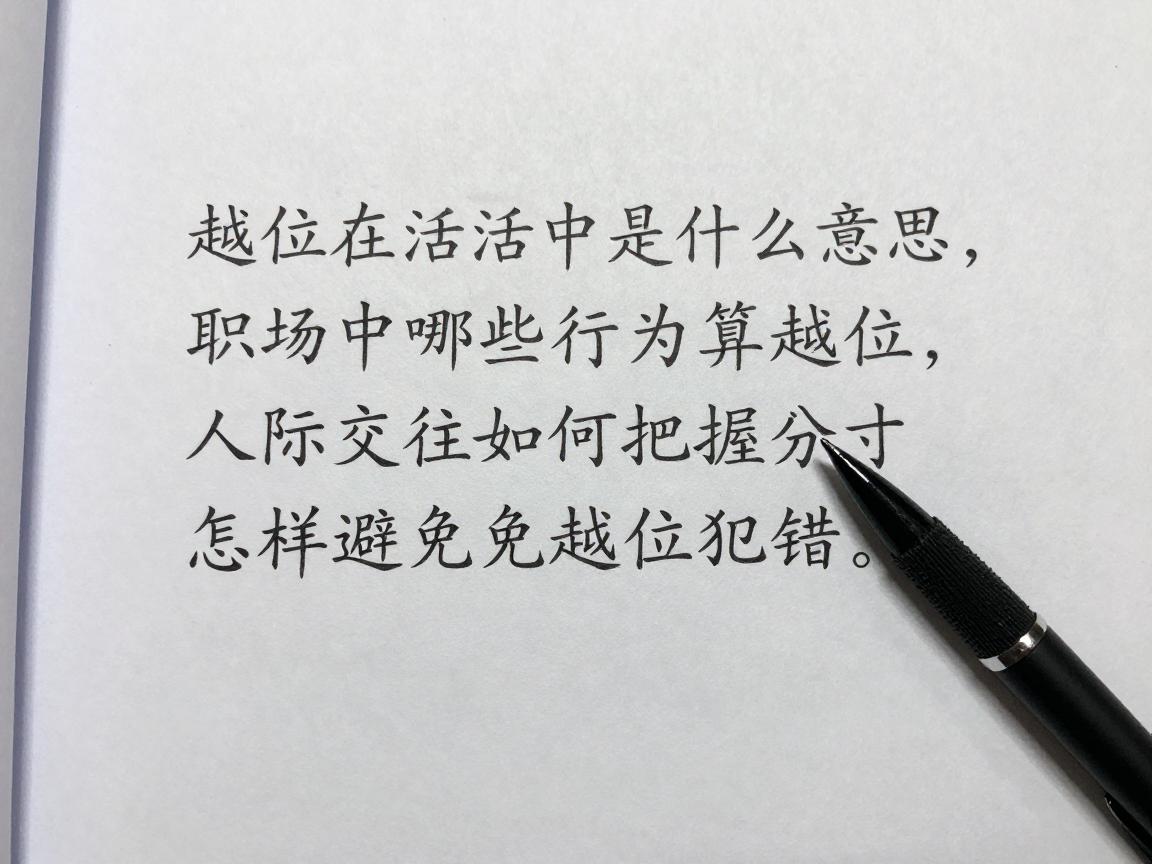 越位在活活中是什么意思，
职场中哪些行为算越位，
人际交往如何把握分寸
怎样避免免越位犯错。